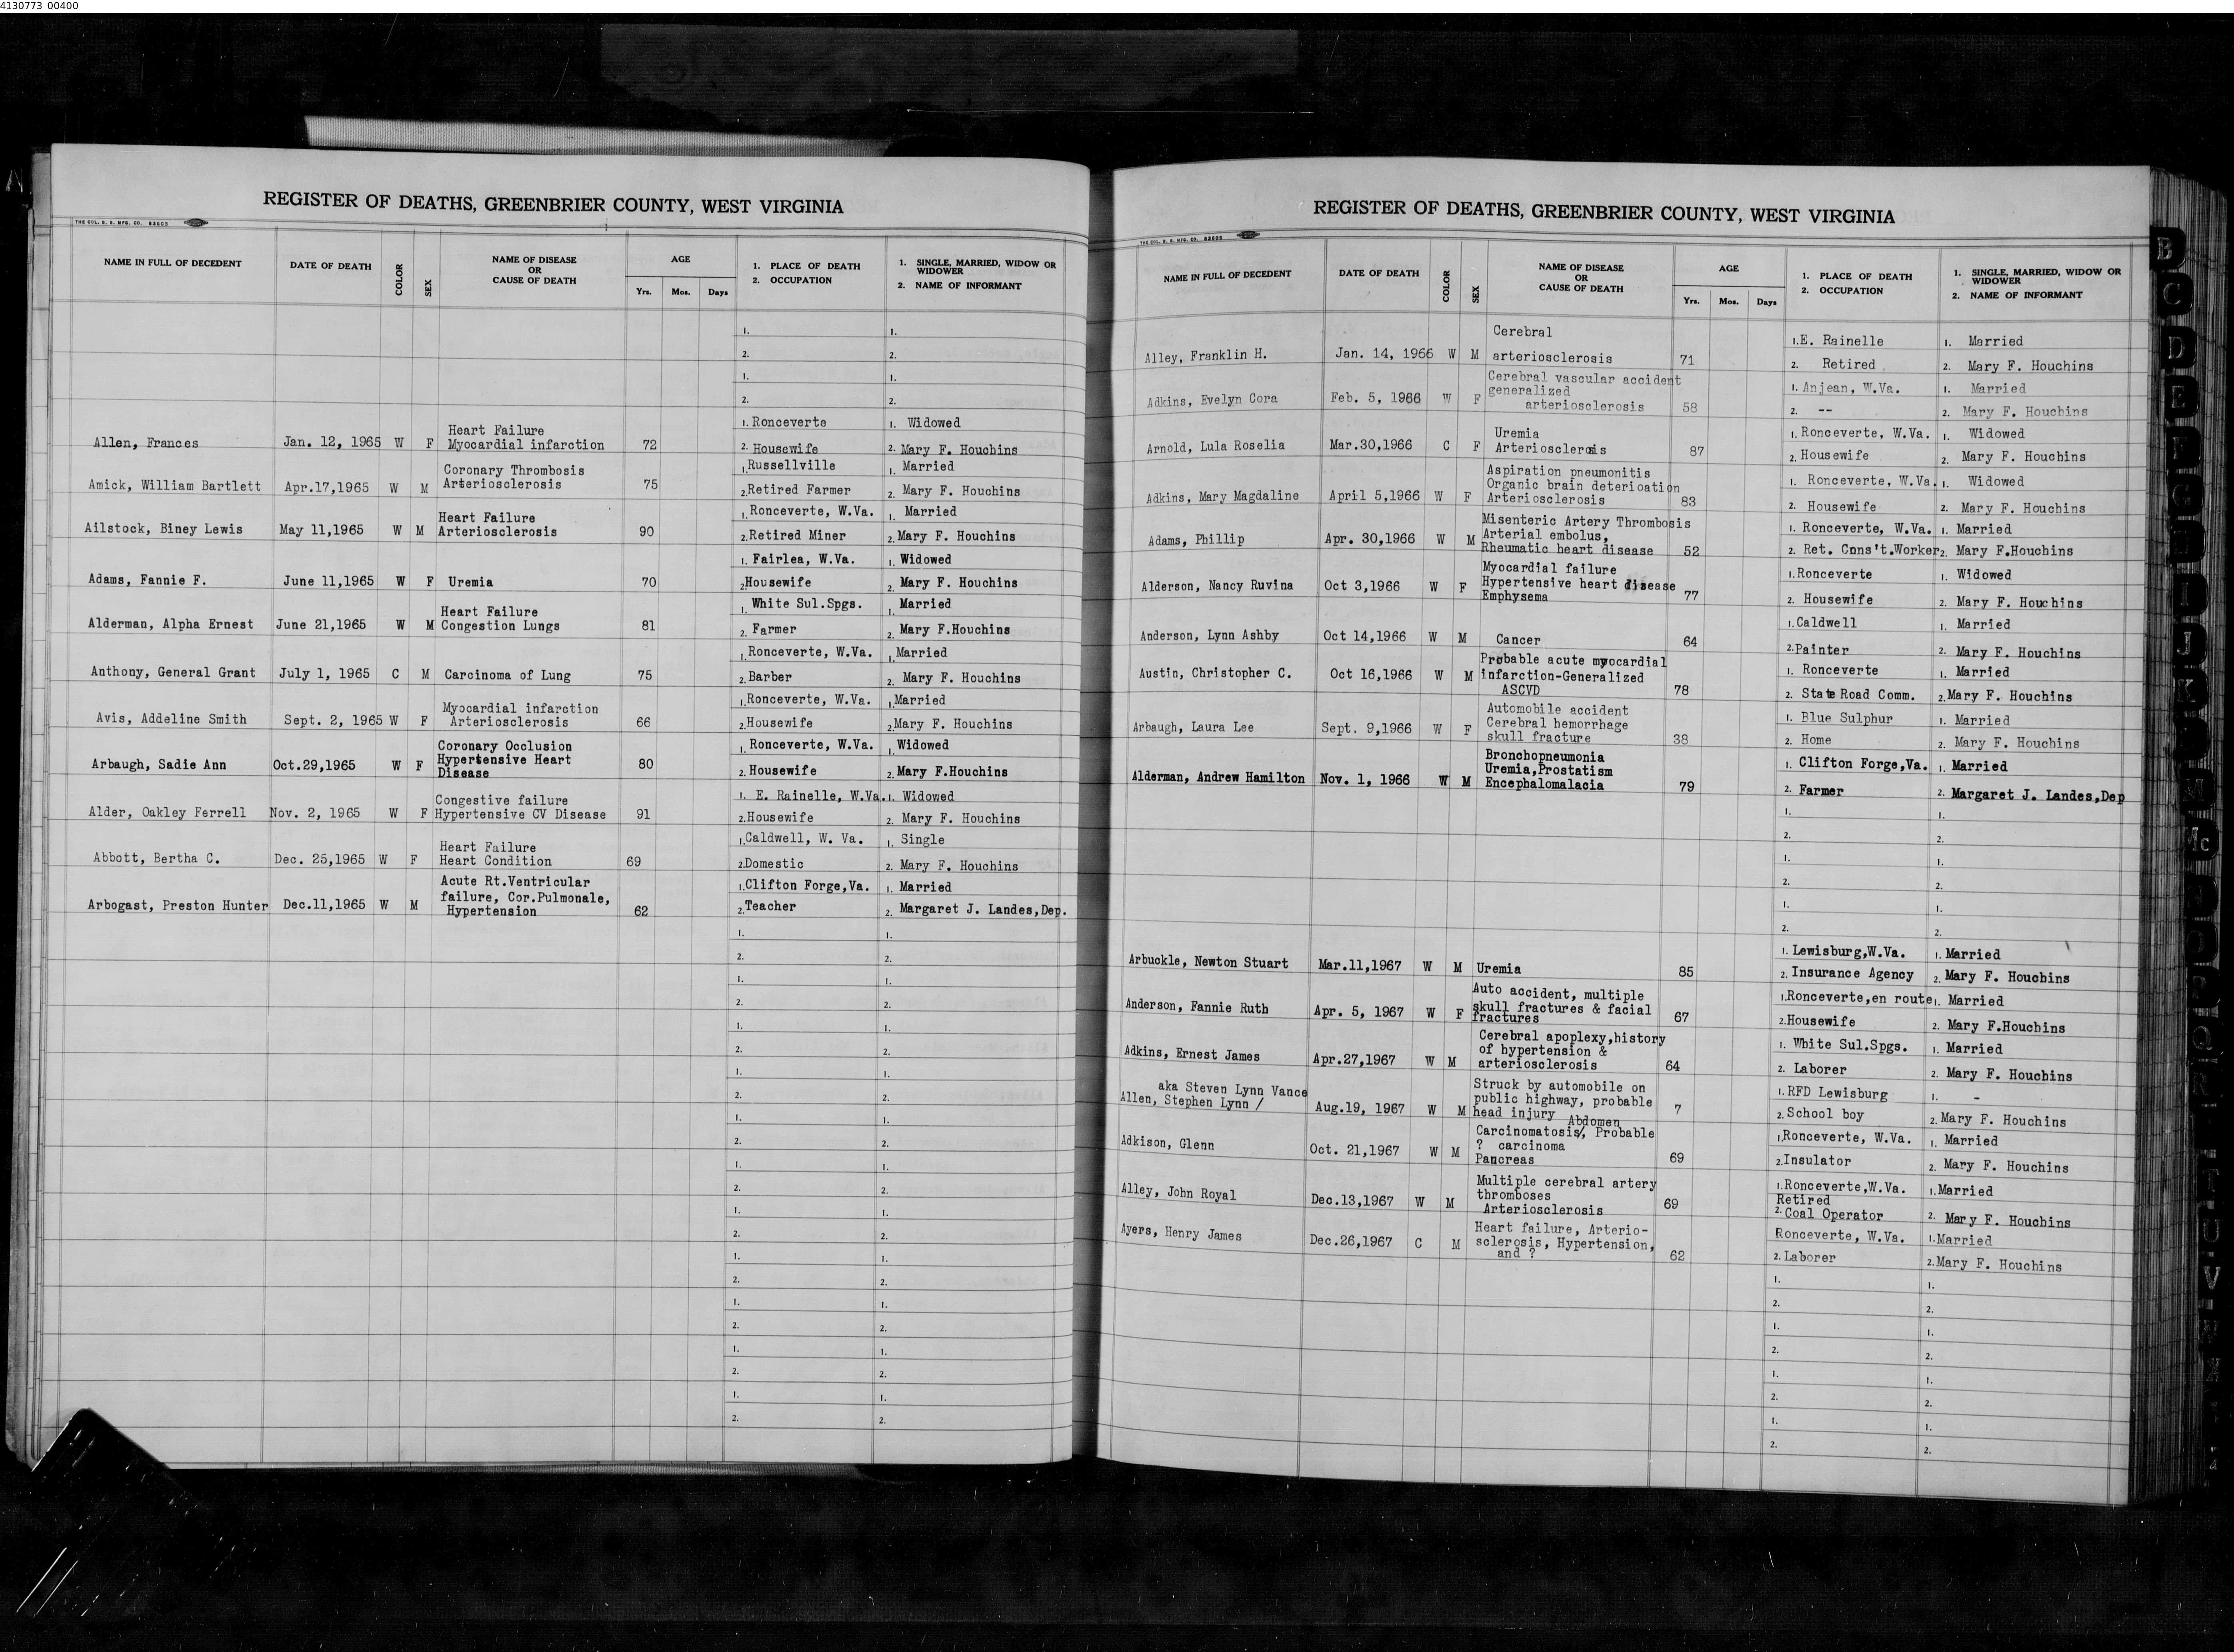 4130773_00400
REGISTER OF DEATHS, GREENBRIER COUNTY, WEST VIRGINIA
THE COL. B. B. MFG. CO. 83603
NAME IN FULL OF DECEDENT
DATE OF DEATH
COLOR
SEX
NAME OF DISEASE
OR
CAUSE OF DEATH
AGE
Yrs. Mos. Days
1. PLACE OF DEATH
2. OCCUPATION
1. SINGLE, MARRIED, WIDOW OR WIDOWER
2. NAME OF INFORMANT
1. 1.
2. 2.
1. 1.
2. 2.
Allen, Frances Jan. 12, 1965 W F Heart Failure Myocardial infarction 72 1. Ronceverte 1. Widowed
2. Housewife 2. Mary F. Houchins
Amick, William Bartlett Apr.17,1965 W M Coronary Thrombosis Arteriosclerosis 75 1. Russellville 1. Married
2. Retired Farmer 2. Mary F. Houchins
Ailstock, Biney Lewis May 11,1965 W M Heart Failure Arteriosclerosis 90 1. Ronceverte, W.Va. 1. Married
2. Retired Miner 2. Mary F. Houchins
Adams, Fannie F. June 11,1965 W F Uremia 70 1. Fairlea, W.Va. 1. Widowed
2. Housewife 2. Mary F. Houchins
Alderman, Alpha Ernest June 21,1965 W M Heart Failure Congestion Lungs 81 1. White Sul.Spgs. 1. Married
2. Farmer 2. Mary F.Houchins
Anthony, General Grant July 1, 1965 C M Carcinoma of Lung 75 1. Ronceverte, W.Va. 1. Married
2. Barber 2. Mary F. Houchins
Avis, Addeline Smith Sept. 2, 1965 W F Myocardial infarction Arteriosclerosis 66 1. Ronceverte, W.Va. 1. Married
2. Housewife 2. Mary F. Houchins
Arbaugh, Sadie Ann Oct.29,1965 W F Coronary Occlusion Hypertensive Heart Disease 80 1. Ronceverte, W.Va. 1. Widowed
2. Housewife 2. Mary F.Houchins
Alder, Oakley Ferrell Nov. 2, 1965 W F Congestive failure Hypertensive CV Disease 91 1. E. Rainelle, W.Va. 1. Widowed
2. Housewife 2. Mary F. Houchins
Abbott, Bertha C. Dec. 25,1965 W F Heart Failure Heart Condition 69 1. Caldwell, W. Va. 1. Single
2. Domestic 2. Mary F. Houchins
Arbogast, Preston Hunter Dec.11,1965 W M Acute Rt.Ventricular failure, Cor.Pulmonale, Hypertension 62 1. Clifton Forge,Va. 1. Married
2. Teacher 2. Margaret J. Landes,Dep.
1. 1.
2. 2.
1. 1.
2. 2.
1. 1.
2. 2.
1. 1.
2. 2.
1. 1.
2. 2.
1. 1.
2. 2.
1. 1.
2. 2.
1. 1.
2. 2.
1. 1.
2. 2.
1. 1.
2. 2.
1. 1.
2. 2.
REGISTER OF DEATHS, GREENBRIER COUNTY, WEST VIRGINIA
THE COL. B. B. MFG. CO. 83603
NAME IN FULL OF DECEDENT
DATE OF DEATH
COLOR
SEX
NAME OF DISEASE
OR
CAUSE OF DEATH
AGE
Yrs. Mos. Days
1. PLACE OF DEATH
2. OCCUPATION
1. SINGLE, MARRIED, WIDOW OR WIDOWER
2. NAME OF INFORMANT
Alley, Franklin H. Jan. 14, 1966 W M Cerebral arteriosclerosis 71 1. E. Rainelle 1. Married
2. Retired 2. Mary F. Houchins
Adkins, Evelyn Cora Feb. 5, 1966 W F Cerebral vascular accident generalized arteriosclerosis 58 1. Anjean, W.Va. 1. Married
2. -- 2. Mary F. Houchins
Arnold, Lula Roselia Mar.30,1966 C F Uremia Arteriosclerosis 87 1. Ronceverte, W.Va. 1. Widowed
2. Housewife 2. Mary F. Houchins
Adkins, Mary Magdaline April 5,1966 W F Aspiration pneumonitis Organic brain deterioation Arteriosclerosis 83 1. Ronceverte, W.Va. 1. Widowed
2. Housewife 2. Mary F. Houchins
Adams, Phillip Apr. 30,1966 W M Misenteric Artery Thrombosis Arterial embolus, Rheumatic heart disease 52 1. Ronceverte, W.Va. 1. Married
2. Ret. Cnns't.Worker 2. Mary F.Houchins
Alderson, Nancy Ruvina Oct 3,1966 W F Myocardial failure Hypertensive heart disease Emphysema 77 1. Ronceverte 1. Widowed
2. Housewife 2. Mary F. Houchins
Anderson, Lynn Ashby Oct 14,1966 W M Cancer 64 1. Caldwell 1. Married
2. Painter 2. Mary F. Houchins
Austin, Christopher C. Oct 16,1966 W M Probable acute myocardial infarction-Generalized ASCVD 78 1. Ronceverte 1. Married
2. State Road Comm. 2. Mary F. Houchins
Arbaugh, Laura Lee Sept. 9,1966 W F Automobile accident Cerebral hemorrhage skull fracture 38 1. Blue Sulphur 1. Married
2. Home 2. Mary F. Houchins
Alderman, Andrew Hamilton Nov. 1, 1966 W M Bronchopneumonia Uremia,Prostatism Encephalomalacia 79 1. Clifton Forge,Va. 1. Married
2. Farmer 2. Margaret J. Landes,Dep
1. 1.
2. 2.
1. 1.
2. 2.
1. 1.
2. 2.
Arbuckle, Newton Stuart Mar.11,1967 W M Uremia 85 1. Lewisburg,W.Va. 1. Married
2. Insurance Agency 2. Mary F. Houchins
Anderson, Fannie Ruth Apr. 5, 1967 W F Auto accident, multiple skull fractures & facial fractures 67 1. Ronceverte,en route 1. Married
2. Housewife 2. Mary F.Houchins
Adkins, Ernest James Apr.27,1967 W M Cerebral apoplexy,history of hypertension & arteriosclerosis 64 1. White Sul.Spgs. 1. Married
2. Laborer 2. Mary F. Houchins
aka Steven Lynn Vance
Allen, Stephen Lynn / Aug.19, 1967 W M Struck by automobile on public highway, probable head injury 7 1. RFD Lewisburg 1. -
2. School boy 2. Mary F. Houchins
Adkison, Glenn Oct. 21,1967 W M Abdomen Carcinomatosis/, Probable ? carcinoma Pancreas 69 1. Ronceverte, W.Va. 1. Married
2. Insulator 2. Mary F. Houchins
Alley, John Royal Dec.13,1967 W M Multiple cerebral artery thromboses Arteriosclerosis 69 1. Ronceverte,W.Va. 1. Married
Retired
2. Coal Operator 2. Mary F. Houchins
Ayers, Henry James Dec.26,1967 C M Heart failure, Arterio-sclerosis, Hypertension, and ? 62 Ronceverte, W.Va. 1. Married
2. Laborer 2. Mary F. Houchins
1. 1.
2. 2.
1. 1.
2. 2.
1. 1.
2. 2.
1. 1.
2. 2.
B
C
D
E
F
G
I
J
K
M
Mc
O
Q
R
T
U
V